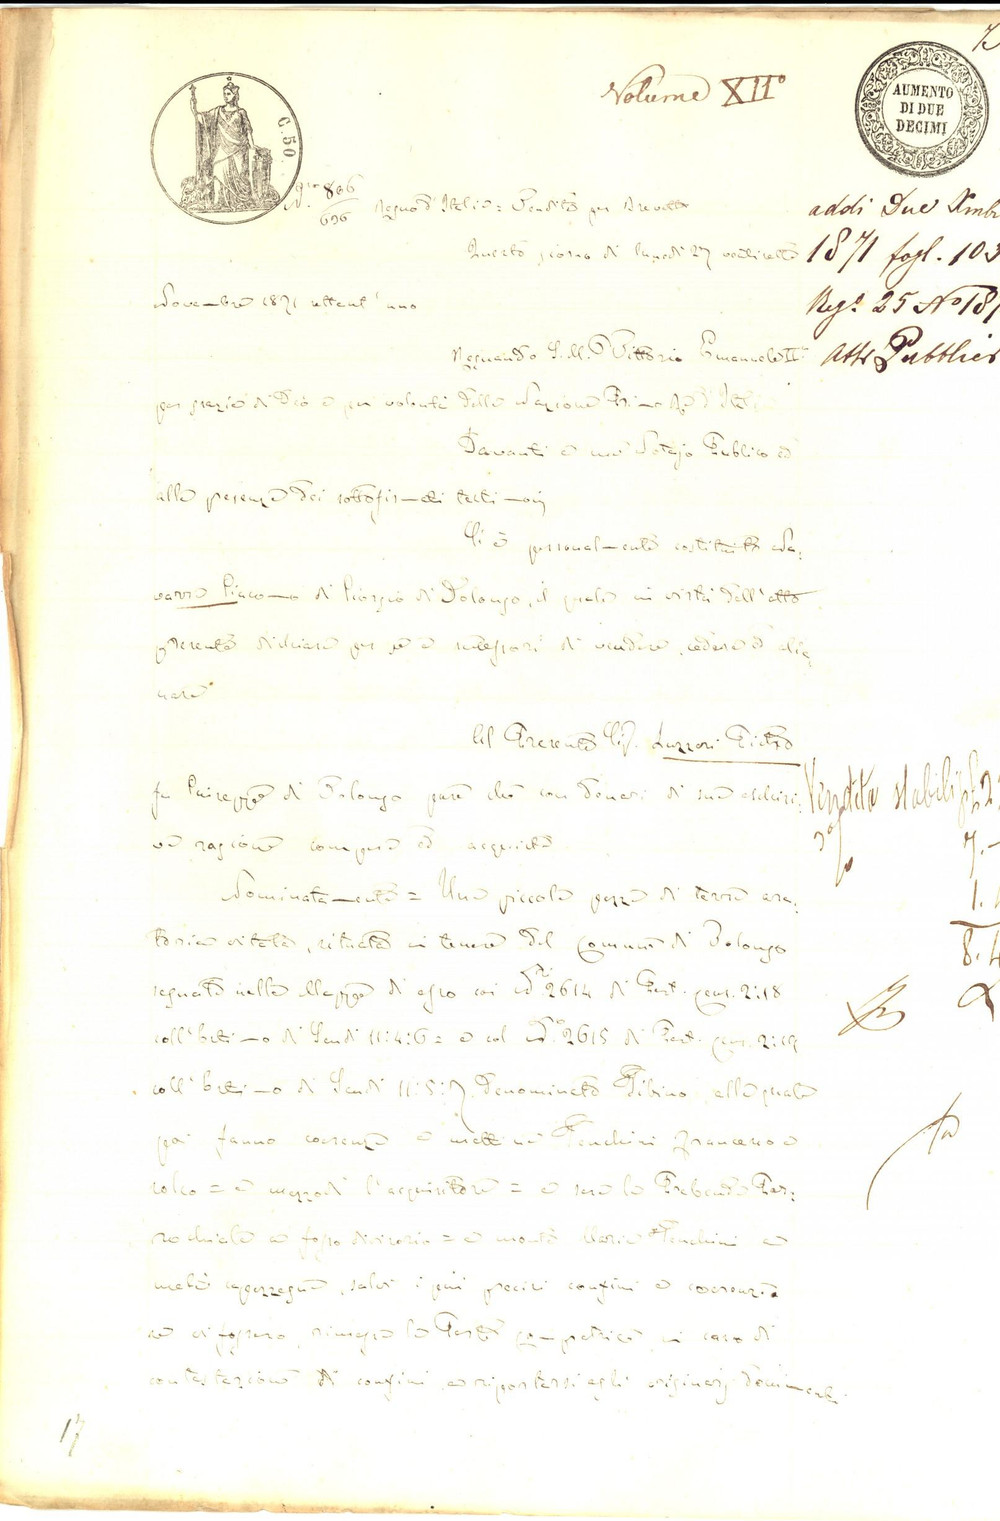 Volume XII°
AUMENTO
DI DUE
DECIMI
C. 50
N. 806
696
Regno d'Italia = Vendita per Brevetto
addi Due Xmbr
Questo giorno di lunedi 27 ventisette
1871 fogl. 103
Novembre 1871 settant'uno
Reg° 25 N° 181
Regnando S. M. Vittorio Emanuele II°
Atti Pubblici
per grazia di Dio e per volontà della Nazione Primo Re d'Italia
Davanti a me Notajo Publico ed
alla presenza dei sottofirmati testimonj
Si è personalmente costituito Na=
varra Giacomo di Giorgio di Polongo, il quale in virtù dell'atto
presente dichiara per se e successori di vendere, cedere ed alie=
nare
Al Presente Sig. Luzzeri Pietro
fu Giuseppe di Polongo pure che con denari di sua esclusi=
va ragione compera ed acquista
Vendita stabili
Nominatamente = Una piccola pezza di terra ara=
toria vitata, situata in tenere del Comune di Polongo
segnata nella Mappa di esso coi N.ri 2614 di Pert. cens. 2:18
8.4
coll'estimo di Scudi 11:4:6 = e col N.° 2615 di Pert. cens. 2:19
coll'estimo di Scudi 11:5:7 denominata, alla quale
poi fanno coerenza a mattina Tenchini Francesco a
solco = a mezzodi l'acquisitore = a sera la Prebenda Par=
rochiale a fosso divisorio = a monte Maria Tenchini a
metà capezzagna, salvi i più precisi confini e coerenze
se vi fossero, rimessa la Parte compratrice in caso di
contestazione di confini, a riportarsi agli originarj documenti
17